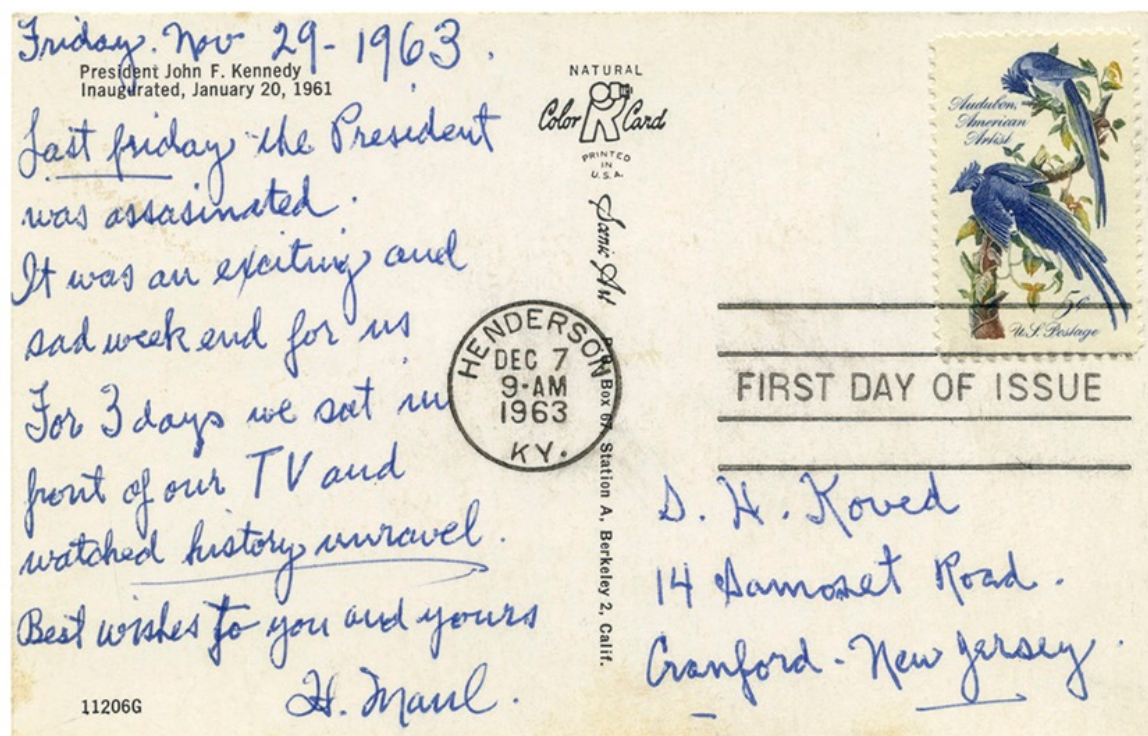 Friday. Nov 29-1963.
President John F. Kennedy
Inaugurated, January 20, 1961
Last friday the President
was assasinated.
It was an exciting and
sad week end for us
For 3 days we sat in
front of our TV and
watched history unravel.
Best wishes to you and yours
H. Maul.
11206G
NATURAL
Color Card
PRINTED
IN
U.S.A.
Scenic Art
Box 67, Station A, Berkeley 2, Calif.
HENDERSON
DEC 7
9-AM
1963
KY.
Audubon,
American
Artist
5¢
U.S. Postage
FIRST DAY OF ISSUE
S. H. Koved
14 Samoset Road.
Cranford - New Jersey.